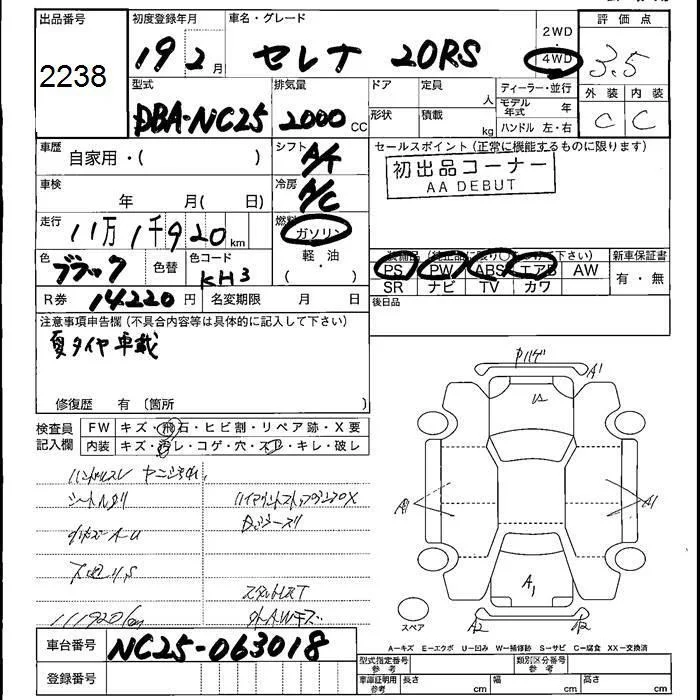 出品番号
2238
初度登録年月
19 2月
車名・グレード
セレナ 20RS
2WD
4WD
評価点
3.5
外装 内装
C C
型式
DBA-NC25
排気量
2000 CC
ドア 定員
人
形状 積載
kg
ディーラー・並行
モデル年式 年
ハンドル 左・右
車歴
自家用・( )
シフト
A/T
セールスポイント (正常に機能するものに限ります)
初出品コーナー
AA DEBUT
車検
年 月( 日)
冷房
A/C
走行
11万1千920 km
燃料
ガソリン
軽・油
( )
色
ブラック
色替
色コード
KH3
装備品
PS PW ABS エアB AW
SR ナビ TV カワ
新車保証書
有・無
R券 14220円 名変期限 月 日
後日品
注意事項申告欄 (不具合内容等は具体的に記入して下さい)
夏タイヤ車載
修復歴 有 〔箇所 〕
検査員記入欄
FW キズ・飛石・ヒビ割・リペア跡・X要
内装 キズ・汚レ・コゲ・穴・スレ・キレ・破レ
ハンドルスレ
111920km
A1
A1
A1
A2
スペア
A-キズ E-エクボ U-凹み W-補修跡 S-サビ C-腐食 XX-交換済
車台番号
NC25-063018
登録番号
型式指定番号 参考
類別区分番号 参考
車庫証明用 参考
長さ cm 幅 cm 高さ cm